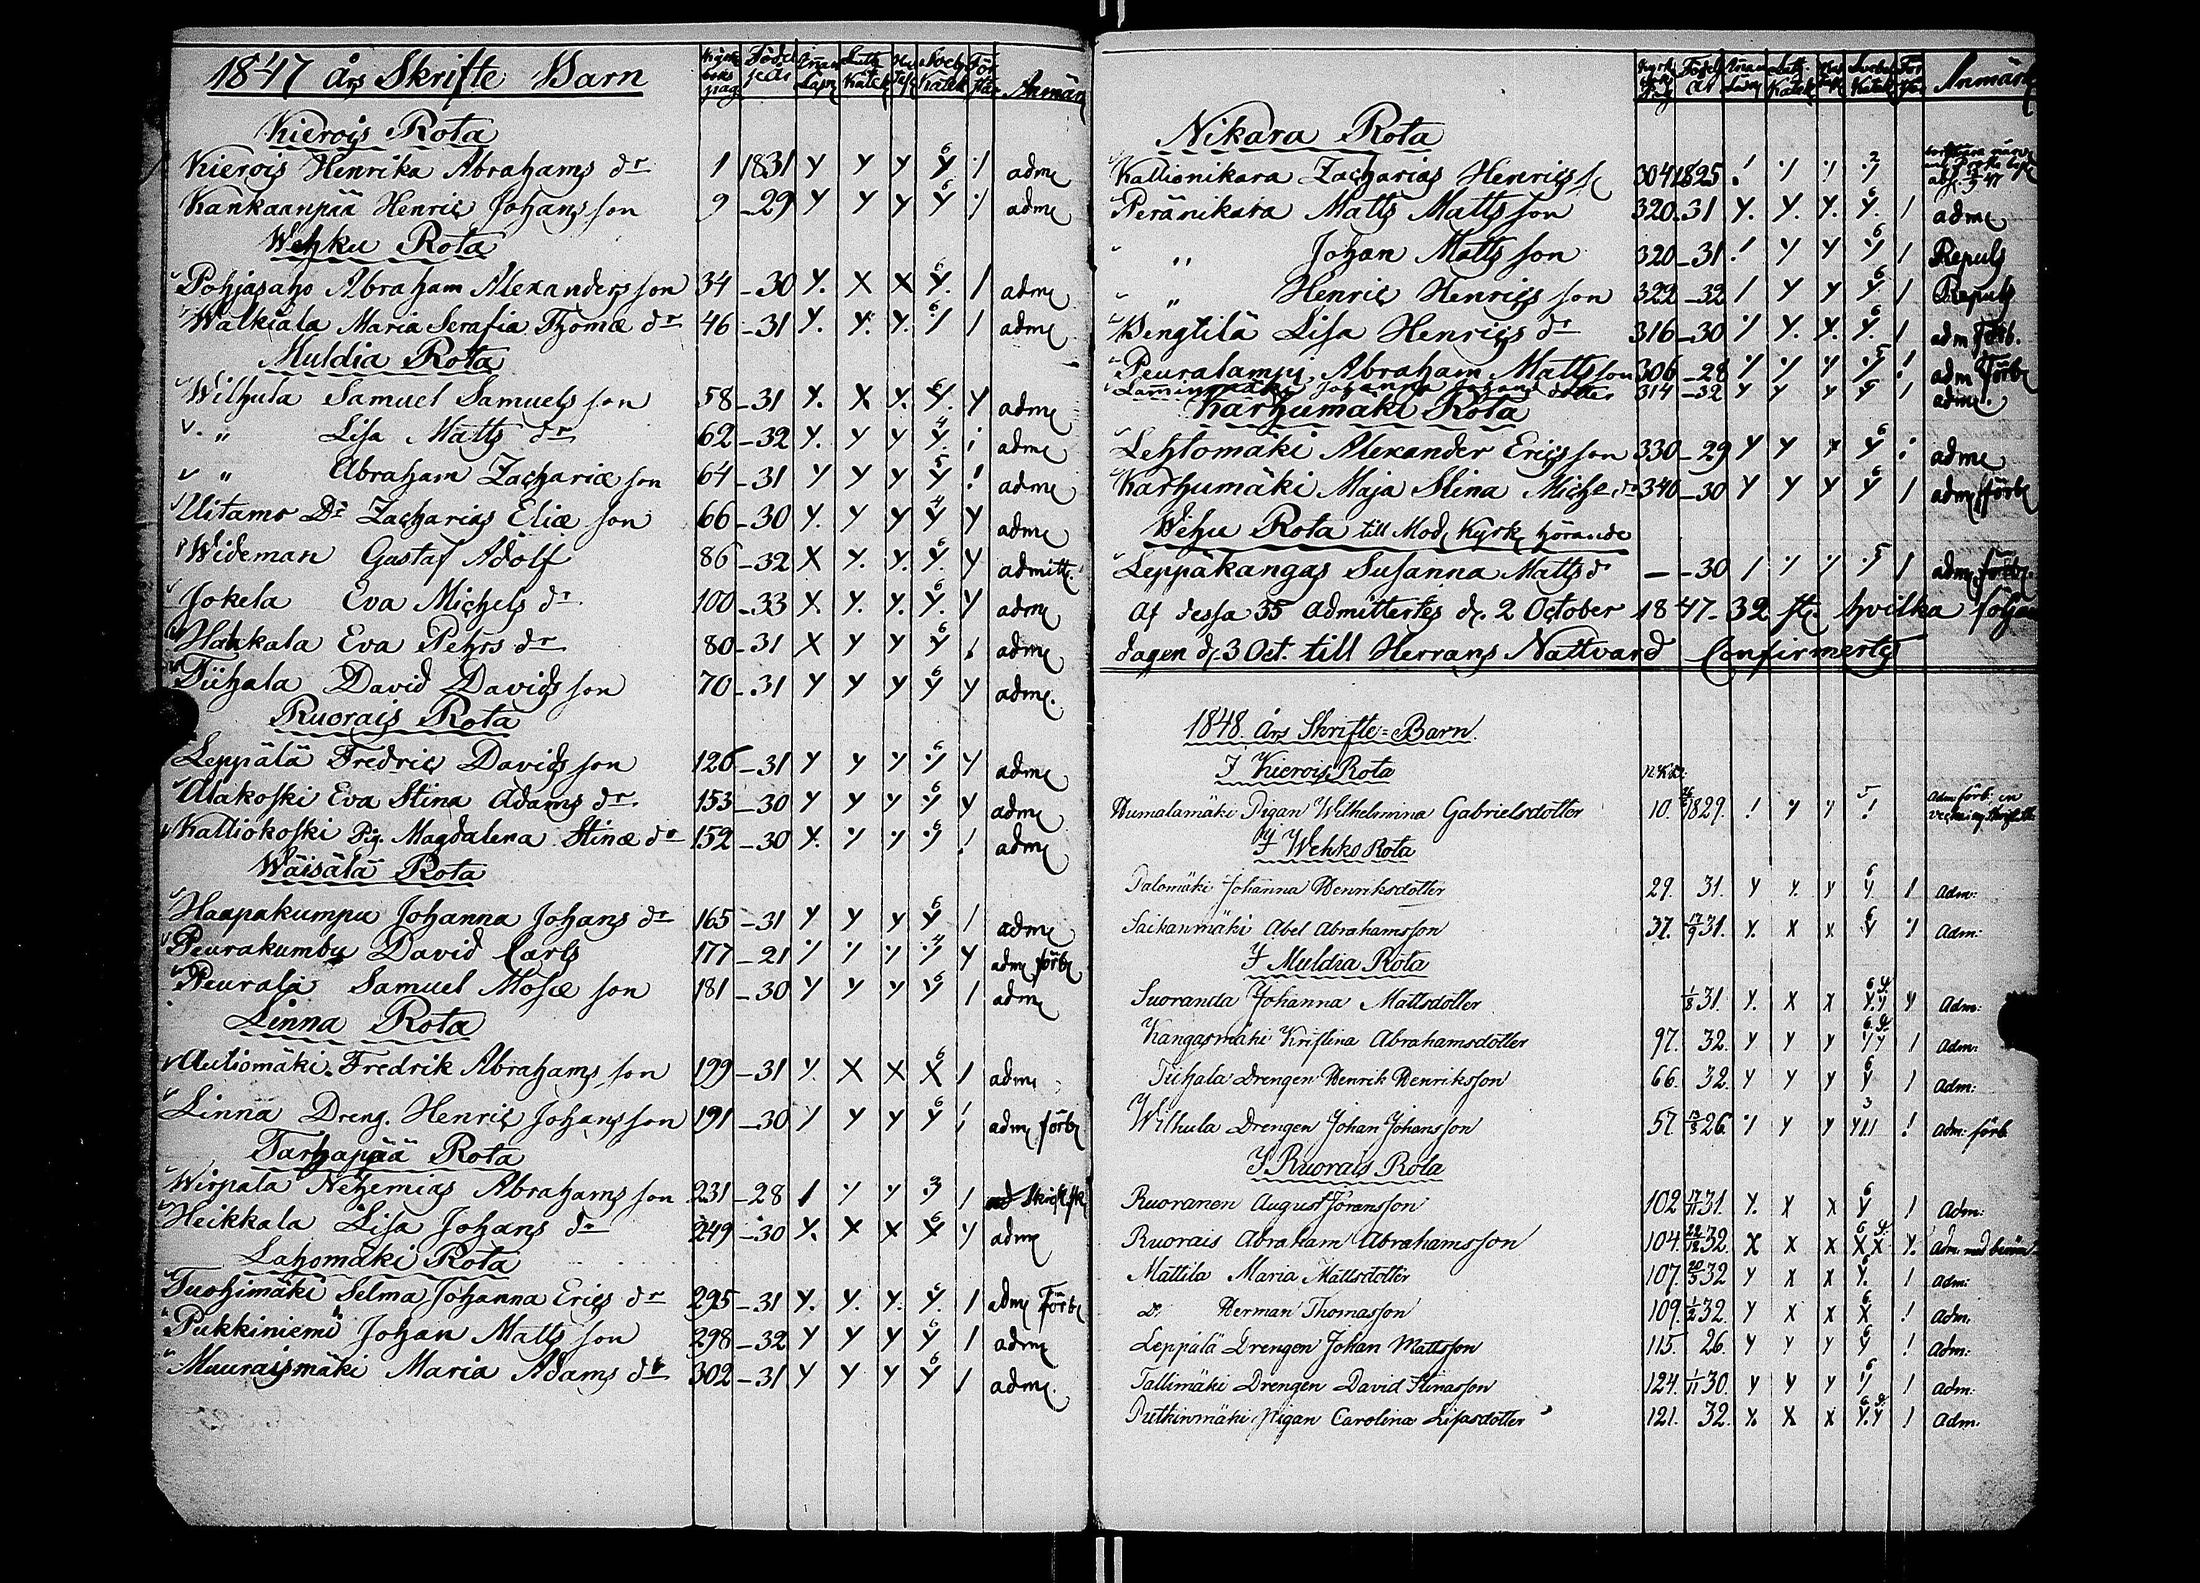 1847 års Skrifte Barn
Anmärk
Kierois Rota
Kierois Henrika Abrahams dr 1 1831 y y y 6 y ·/ adm
Kankaanpää Henric Johansson 9 -29 y y y 6 y ·/ adm
Wehku Rota
Pohjasaho Abraham Alexandersson 34 -30 y. x x 6 y. / adm
Walkiala Maria Serafia Thomæ dr 46 -31 y. y. y. 6 ·/ / adm
Muldia Rota
Wilhula Samuel Samuelsson 58 -31 y. x y. 6 y. y adm
" Lisa Matts dr 62 -32 y. y y 4 y. adm
" Abraham Zachariæ son 64 -31 y y y 5 y ! adm
Uitamo Dr Zacharias Eliæ son 66 -30 y. y y 4 y y adm
Wideman Gustaf Adolf 86 -32 x y. y. 6 y. y admitt.
Jokela Eva Michels dr 100 -33 x. y. y. 6 y. y adm
Hakkala Eva Pehrs dr 80 -31 x y y 6 y adm
Tiihala David Davidsson 70 -31 y y y 6 y y adm.
Ruorais Rota
Leppälä Fredric Davidsson 126 -31 y y y 6 y y adm
Alakoski Eva Stina Adams dr 153 -30 y y y 6 y y adm
Kalliokoski Pig. Magdalena Stinæ dr 152 -30 y. ·/ ·/ 6 ·/ ! adm
Wäisälä Rota
Haapakumpu Johanna Johans dr 165 -31 y y y 6 y / adm
Peurakumby David Carls 177 -21 ·/ ·/ ·/ 4 ·/ y adm förb
Peurala Samuel Mosæ son 181 -30 y y y 6 y / adm
Linna Rota
Autiomäki Fredrik Abrahamsson 199 -31 y. x x 6 x / adm
Linna Dreng. Henric Johansson 191 -30 / y y 6 y ! adm förb
Tarhapää Rota
Wirpala Nehemias Abrahamsson 231 -28 / y y 3 /
Heikkala Lisa Johans dr 249 -30 y. x x 6 x y adm
Lahomäki Rota
Tuohimäki Selma Johanna Erics dr 295 -31 y. y. y. 6 y. / adm förb
Pukkiniemi Johan Mattsson 298 -32 y y y 6 y / adm
Muuraismäki Maria Adams dr 302 -31 y y y 6 y / adm.
Anmärk
Nikara Rota
Kallionikara Zacharias Henrics 304 1825 ! ·/ ·/ 2 ·/
Peränikara Matts Mattsson 320 -31 y. y. y. 6 y. / adm
" Johan Mattsson 320 -31 ! y y 6 y / Repuls
" Henric Henricsson 322 -32 / y y 6 y / Repuls
Bengtilä Lisa Henrics dr 316 -30 ·/ y. y. 6 y. / adm förb.
Peuralampi Abraham Mattsson 306 -28 ·/ ·/ ·/ 5 ·/ ! adm förb
Lamminmäki Johanna Johans dotter 314 -32 y y y 6 / adm.
Karhumäki Rota
Lehtomäki Alexander Ericsson 330 -29 y y x 6 y adm
Karhumäki Maja Stina Mich. dr 340 -30 y y y 6 y / adm förb
Wehu Rota till Mod Kyrk hörande
Leppäkangas Susanna Matts d — -30 / ·/ ·/ 5 ·/ / adm förb.
Af dessa 35 admittertes d. 2 October 1847 - 32 st. hvilka följan
dagen d. 3 Oct. till Herrans Nattvard Confirmertes
1848. Års Skrifte=Barn.
I Kierois Rota
Humalamäki Pigan Wilhelmina Gabrielsdotter 10. 1829. ! y y 5 ! Adm förb. en
I Wehko Rota
Palomäki Johanna Henriksdotter 29. 31. y y. y 6 y / Adm:
Saikanmäki Abel Abrahamsson 37. 17/9 31. y. x x 6 y ·/ Adm:
I Muldia Rota
Suoranda Johanna Mattsdotter 1/8 31. y. x x 6 y.y y Adm:
Kangasmäki Kristina Abrahamsdotter 97. 32. y y y 6 yy / Adm:
Tiihala Drengen Henrik Henriksson 66. 32. y y y 6 y / Adm:
Wilhula Drengen Johan Johansson 57. 26. ·/ y y 3 y ! Adm: förb.
I Ruorais Rota
Ruoranen August Göransson 102 31. y. x x 6 y / Adm:
Ruorais Abraham Abrahamsson 104. 22/12 32. x x x 6 x x y. Adm. med beröm
Mattila Maria Mattsdotter 107. 20/5 32 y x x 6 y. / Adm:
D:o Herman Thomasson 109. 1/2 32. y x x 6 x ! Adm.
Leppälä Drengen Johan Mattsson 115. 26. y y y 6 y ! Adm:
Tallimäki Drengen David Stinasson 124. 1/11 30. y y y 6 y / Adm:
Putkinmäki Pigan Carolina Lisasdotter 121. 32. y. x x 6 y.y / Adm: